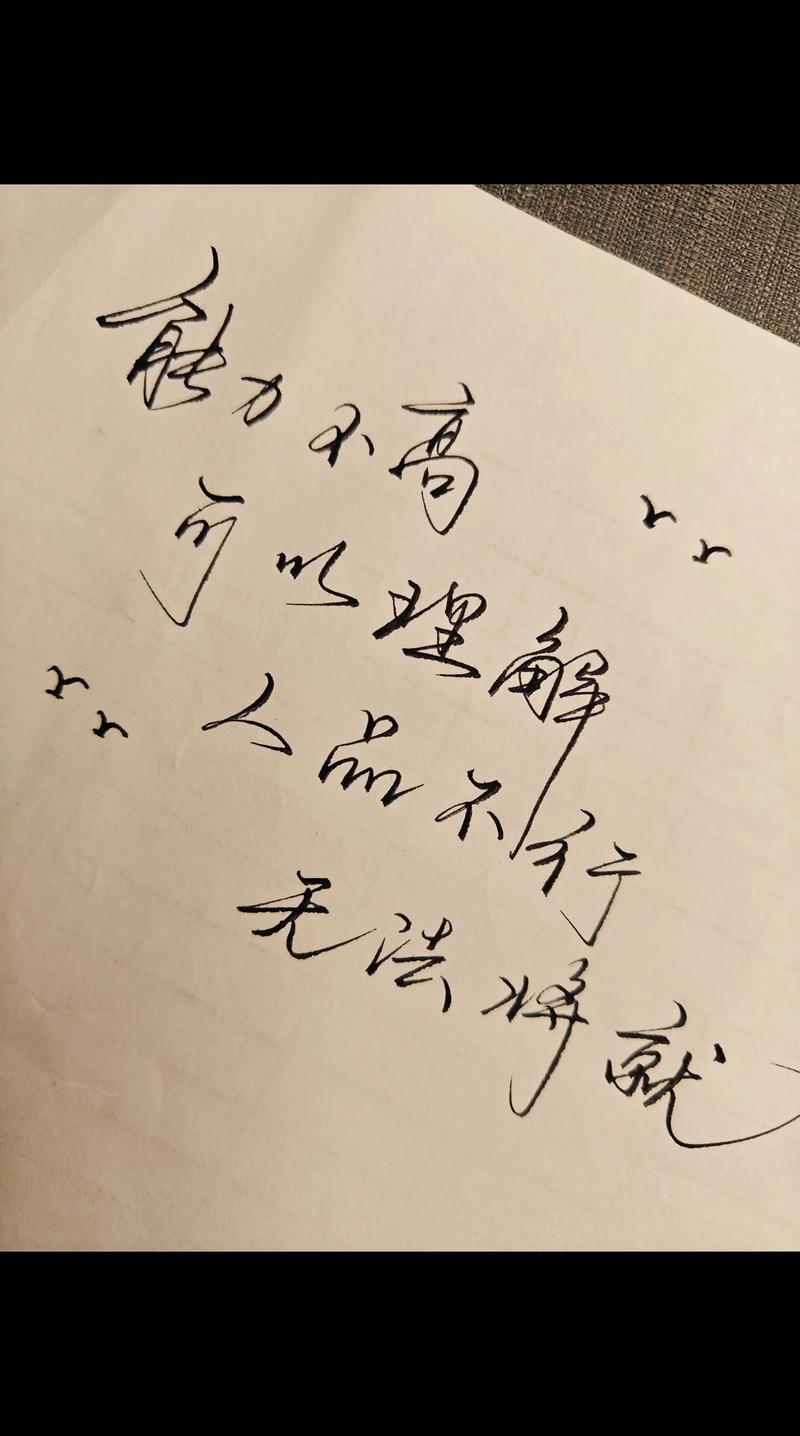 能力不高
可以理解
人品不行
无法将就